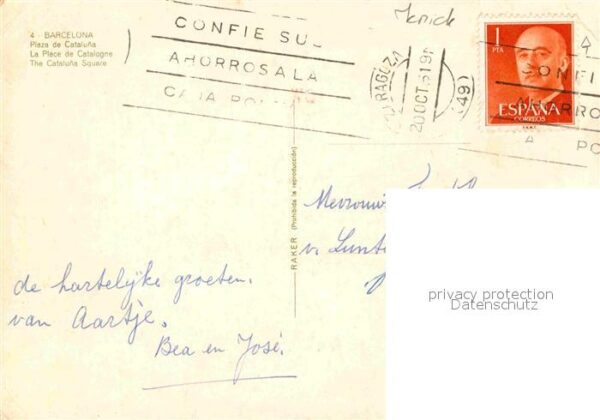 4 - BARCELONA
Plaza de Cataluña
La Place de Catalogne
The Cataluña Square
CONFIE SUS
AHORROS A LA
CAJA POSTAL
ZARAGOZA
20 OCT. 61 19
(49)
1
PTA
ESPAÑA
CORREOS
A
CONFIE
AHORRO
A
PO
RAKER (Prohibida la reproducción)
Mevrouw
v.
de hartelijke groeten.
van Aartje.
Bea en José.
privacy protection
Datenschutz